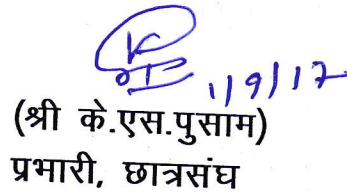 1/9/17
(श्री के.एस.पुसाम)
प्रभारी, छात्रसंघ